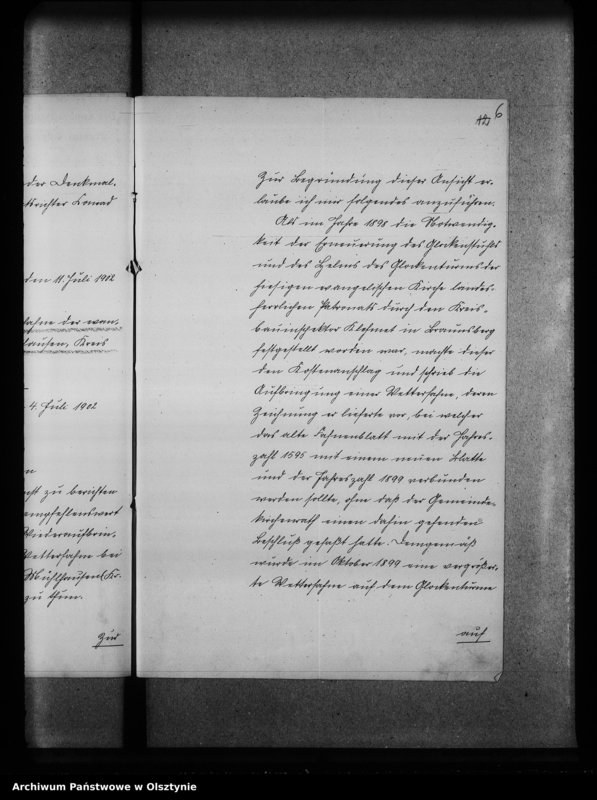 der Denkmal-
richter Conrad
den 11. Juli 1902
fahne der evan-
hausen, Kreis
4. Juli 1902
zu berichten
empfehlenswert
Wiederaufbrin-
Wetterfahne bei
Mühlhausen Kr.
zu thun.
Zur
6
Zur Begründung dieser Ansicht er-
laube ich mir folgendes anzuführen.
Als im Jahre 1898 die Notwendig-
keit der Erneuerung des Glockenstuhls
und des Helms des Glockenturms der
hiesigen evangelischen Kirche landes-
herrlichen Patronats durch den Kreis-
bauinspektor Klehmet in Braunsberg
festgestellt worden war, machte dieser
den Kostenanschlag und schrieb die
Aufbringung einer Wetterfahne, deren
Zeichnung er lieferte vor, bei welcher
das alte Fahnenblatt mit der Jahres-
zahl 1595 mit einem neuen Blatte
und der Jahreszahl 1899 verbunden
werden sollte, ohne daß der Gemeinde-
kirchenrath einen dahin gehenden
Beschluß gefaßt hatte. Demgemäß
wurde im Oktober 1899 eine vergrößer-
te Wetterfahne auf dem Glockenturme
auf
Archiwum Państwowe w Olsztynie